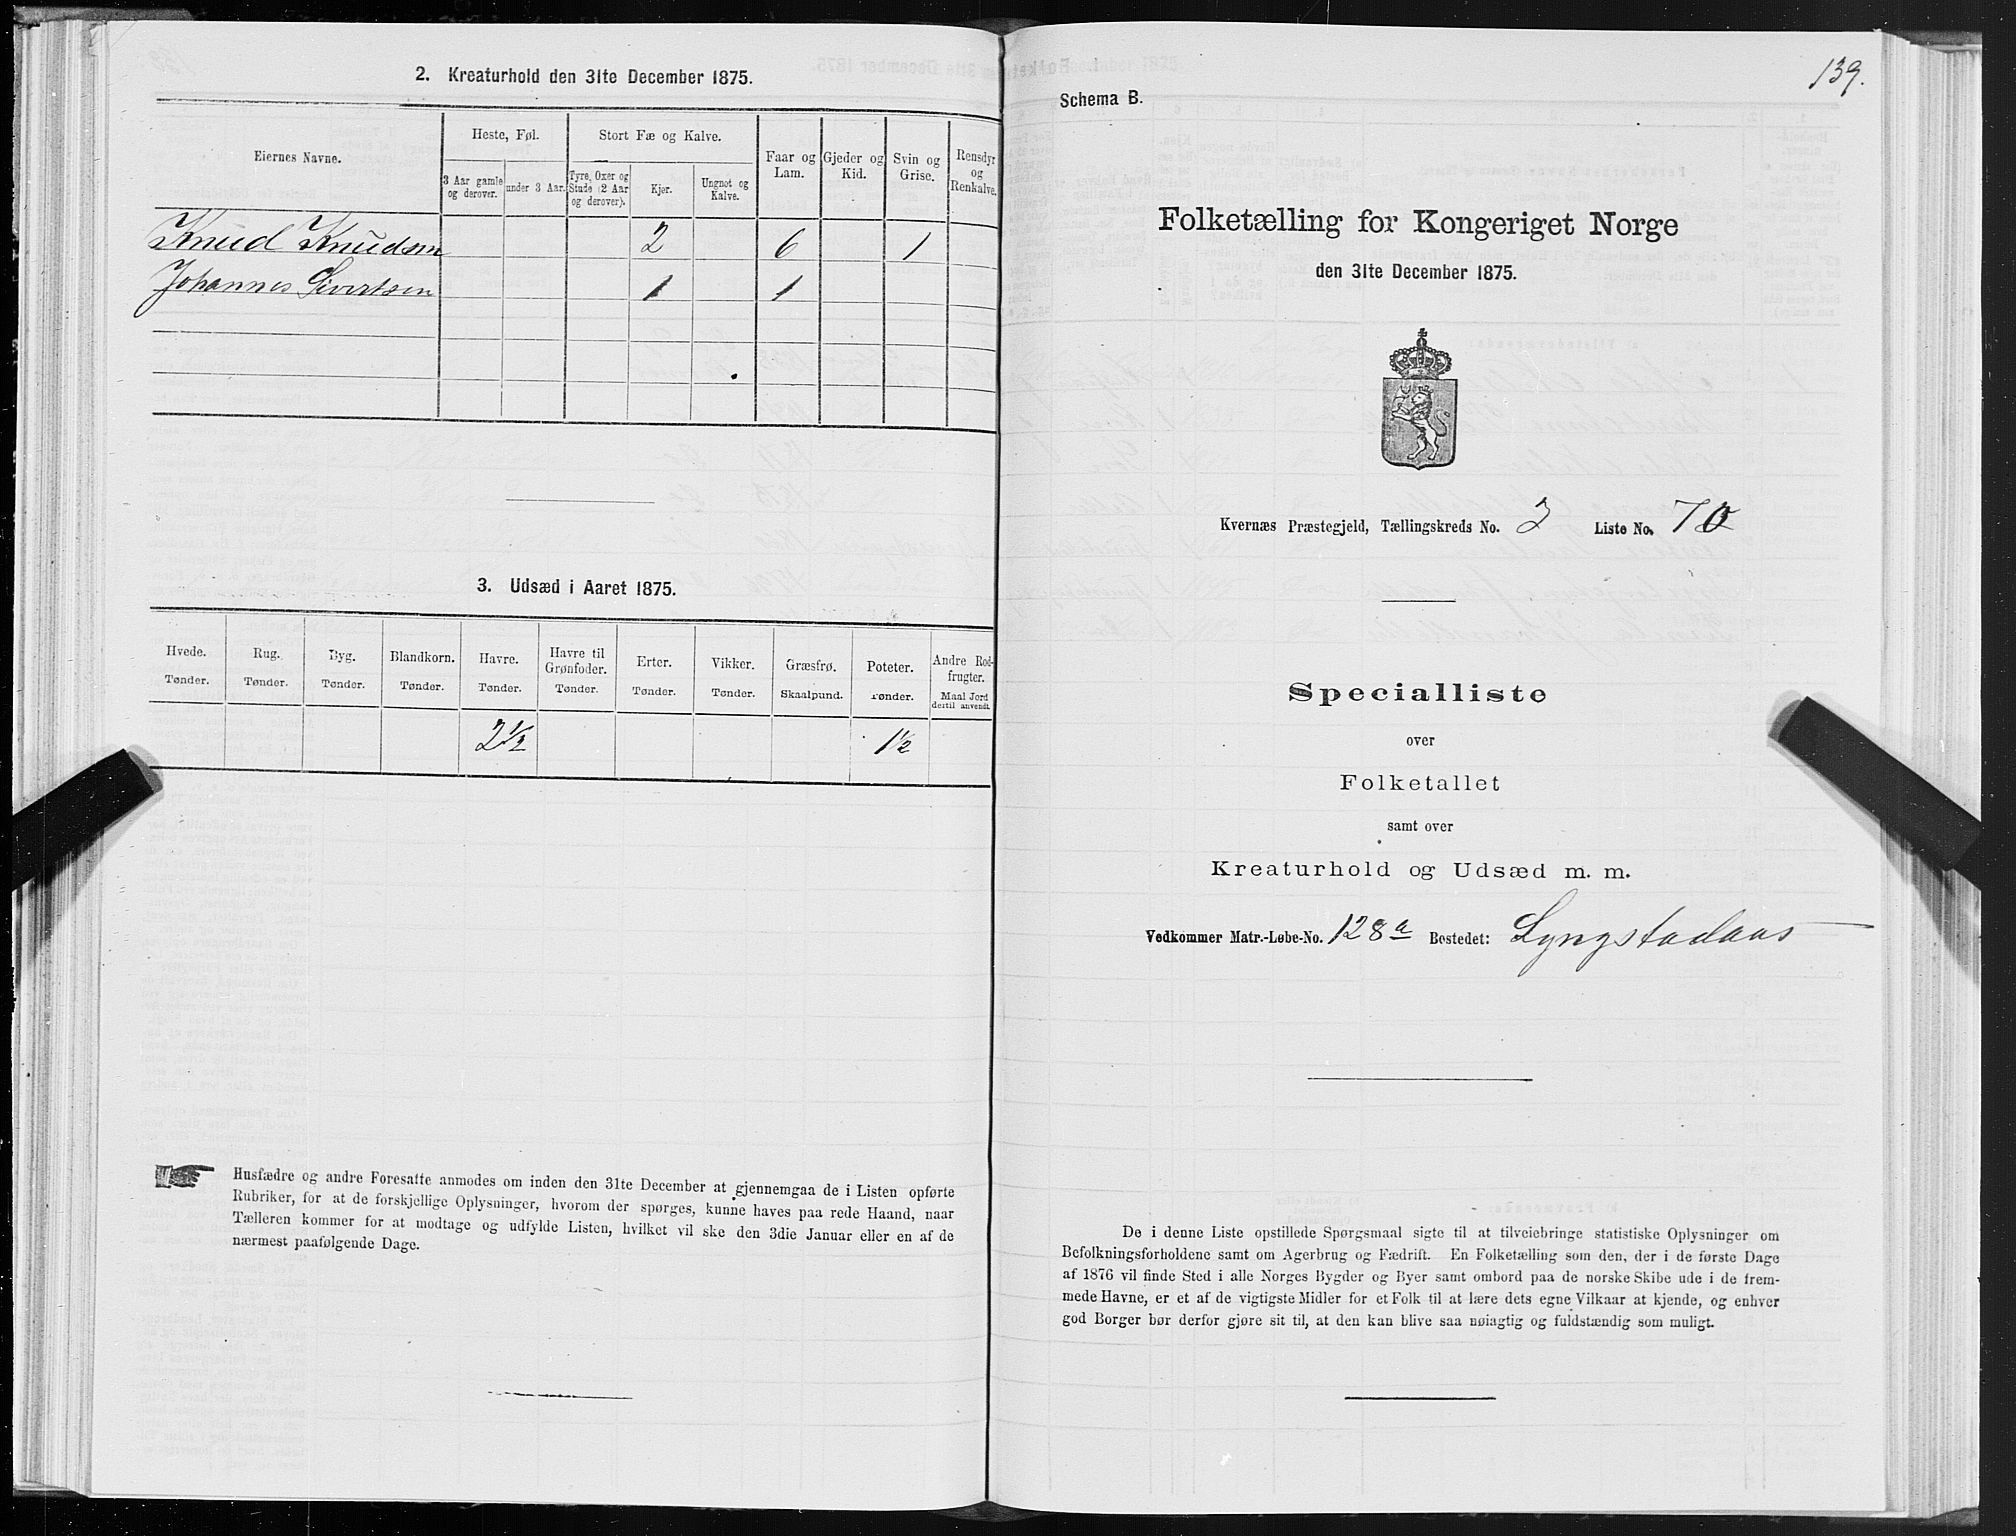 2. Kreaturhold den 31te December 1875.
Eiernes Navne.
Heste, Føl.
Stort Fæ og Kalve.
Faar og Lam.
Gjeder og Kid.
Svin og Grise.
Rensdyr og Renkalve.
3 Aar gamle og derover.
under 3 Aar.
Tyre, Oxer og Stude (2 Aar og derover).
Kjør.
Ungnøt og Kalve.
Knud Knudsen 2 6 1
Johannes Sivertsen 1 1
3. Udsæd i Aaret 1875.
Hvede. Rug. Byg. Blandkorn. Havre. Havre til Grønfoder. Erter. Vikker. Græsfrø. Poteter. Andre Rodfrugter.
Tønder. Tønder. Tønder. Tønder. Tønder. Tønder. Tønder. Tønder. Skaalpund. Tønder. Maal Jord dertil anvendt.
2 1/2 1 1/2
Husfædre og andre Foresatte anmodes om inden den 31te December at gjennemgaa de i Listen opførte
Rubriker, for at de forskjellige Oplysninger, hvorom der spørges, kunne haves paa rede Haand, naar
Tælleren kommer for at modtage og udfylde Listen, hvilket vil ske den 3die Januar eller en af de
nærmest paafølgende Dage.
139.
Schema B.
Folketælling for Kongeriget Norge
den 31te December 1875.
Kvernæs Præstegjeld, Tællingskreds No. 3 Liste No. 70
Specialliste
over
Folketallet
samt over
Kreaturhold og Udsæd m. m.
Vedkommer Matr.-Løbe-No. 128a Bostedet: Lyngstadaas
De i denne Liste opstillede Spørgsmaal sigte til at tilveiebringe statistiske Oplysninger om
Befolkningsforholdene samt om Agerbrug og Fædrift. En Folketælling som den, der i de første Dage
af 1876 vil finde Sted i alle Norges Bygder og Byer samt ombord paa de norske Skibe ude i de frem-
mede Havne, er et af de vigtigste Midler for et Folk til at lære dets egne Vilkaar at kjende, og enhver
god Borger bør derfor gjøre sit til, at den kan blive saa nøiagtig og fuldstændig som muligt.